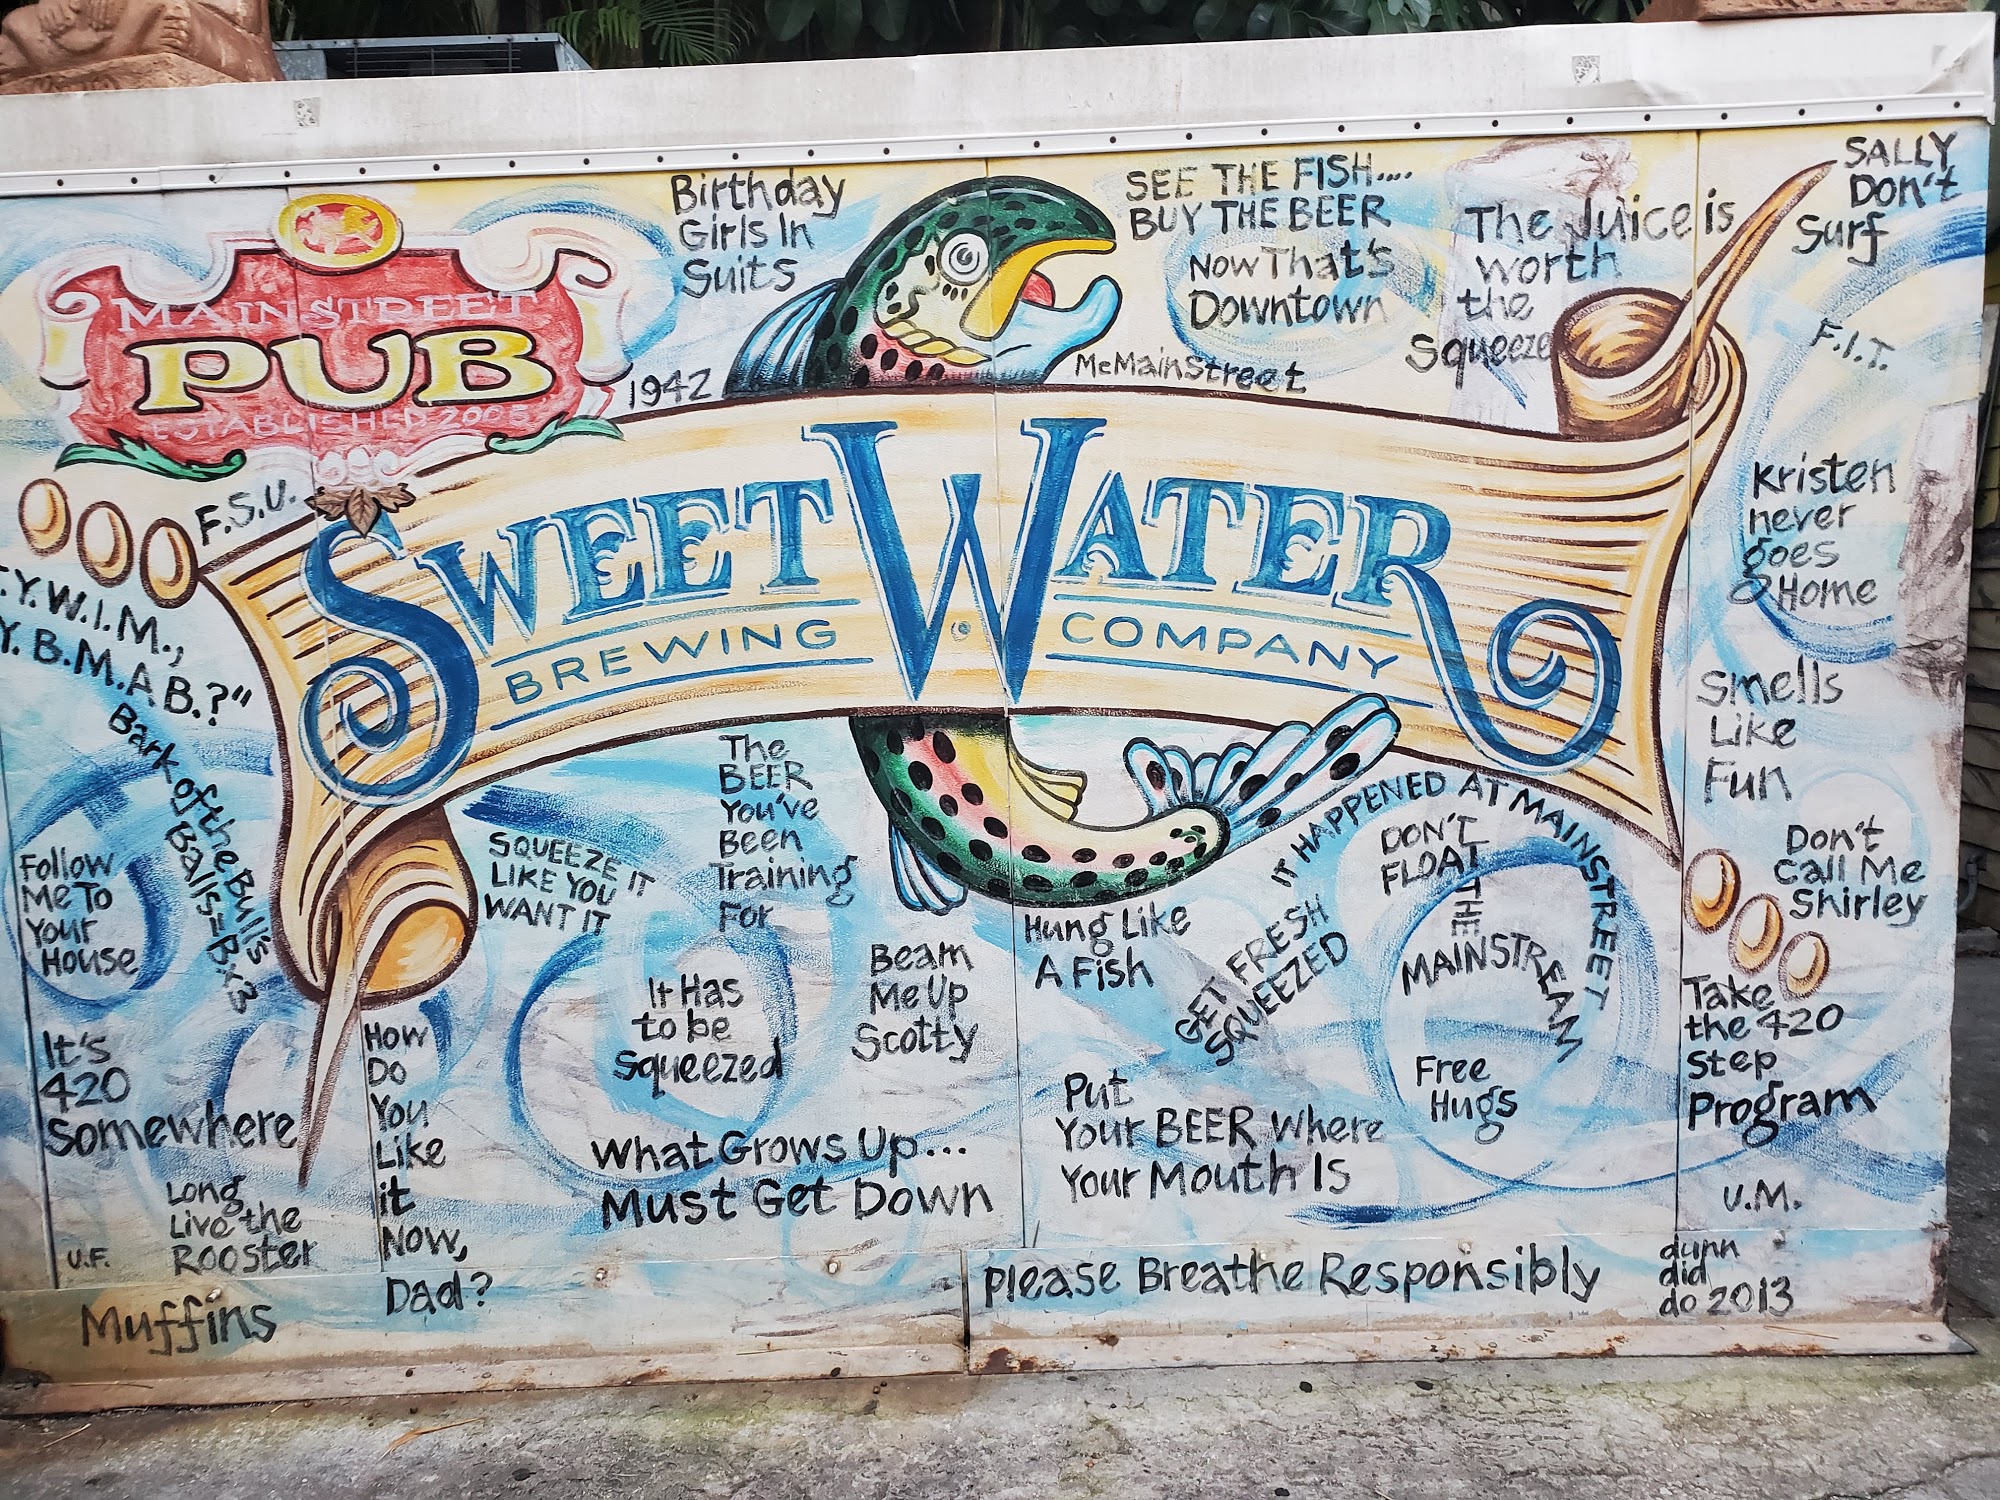 MAINSTREET
PUB
ESTABLISHED 2005
Birthday
Girls In
Suits
1942
SEE THE FISH....
BUY THE BEER
Now That's
Downtown
McMainStreet
The Juice is
worth
the
Squeeze
SALLY
Don't
Surf
F.I.T.
F.S.U.
SWEETWATER
BREWING COMPANY
.Y.W.I.M.,
Y.B.M.A.B.?"
Bark of the Bull's
Balls=B.x3
Kristen
never
goes
Home
Smells
Like
Fun
Don't
Call Me
Shirley
Follow
Me To
Your
House
SQUEEZE IT
LIKE YOU
WANT IT
The
BEER
You've
Been
Training
For
It Has
to be
Squeezed
Beam
Me Up
Scotty
Hung Like
A Fish
GET FRESH
SQUEEZED
IT HAPPENED AT MAINSTREET
DON'T
FLOAT
THE
MAINSTREAM
Free
Hugs
Take
the 420
Step
Program
It's
420
Somewhere
How
Do
You
Like
it
Now,
Dad?
What Grows Up...
Must Get Down
Put
Your BEER Where
Your Mouth Is
U.M.
Long
Live the
Rooster
U.F.
Muffins
Please Breathe Responsibly
dunn
did
do 2013